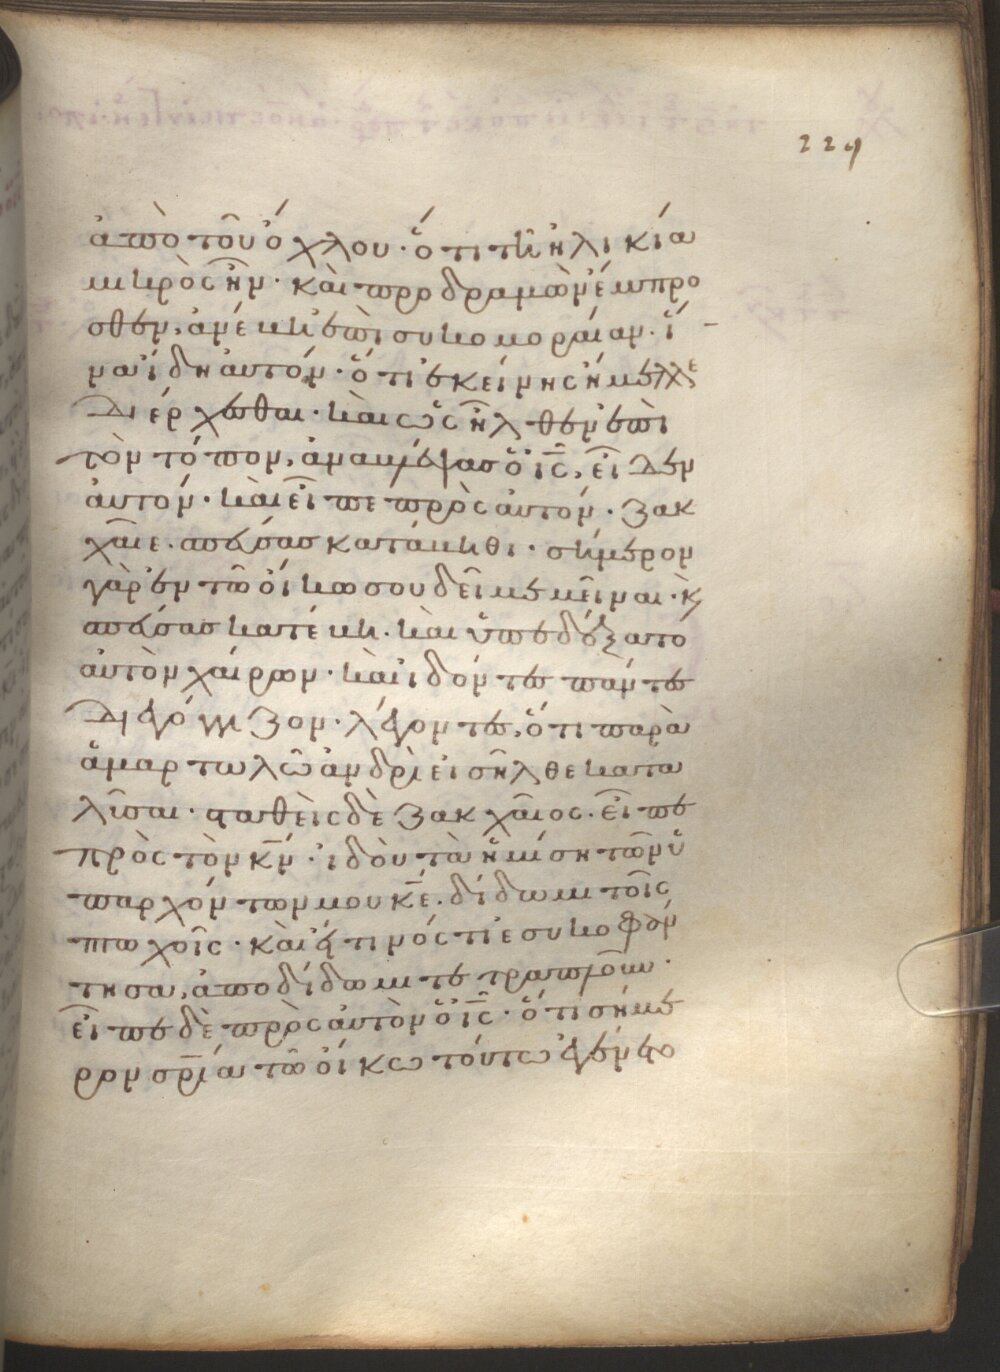 229
ἀπὸ τοῦ ὄχλου· ὅτι τῆ ἡλικία
μικρὸς ἦν· καὶ προδραμὼν ἔμπρο
σθεν, ἀνέβη ἐπὶ συκομοραίαν· ἵ
να ἴδη αὐτόν· ὅτι ἐκείνης ἤμελλε
διέρχεσθαι· καὶ ὡς ἦλθεν ἐπὶ
τὸν τόπον, ἀναβλέψας ὁ ις, εἶδεν
αὐτόν· καὶ εἶπε πρὸς αὐτόν· Ζακ
χαῖε· σπεύσας κατάβηθι· σήμερον
γὰρ ἐν τῶ οἴκω σου δεῖ με μεῖναι· κ
σπεύσας κατέβη· καὶ ὑπεδέξατο
αὐτὸν χαίρων· καὶ ἰδόντες πάντες
διεγόγγυζον· λέγοντες, ὅτι παρὰ
ἁμαρτωλῶ ἀνδρὶ εἰσῆλθε κατα
λῦσαι· σταθεὶς δὲ Ζακχαῖος· εἶπε
πρὸς τὸν κν· ἰδοὺ τὰ ἡμίση τῶν ὑ
παρχόντων μου κε· δίδωμι τοῖς
πτωχοῖς· καὶ εἴ τινός τι ἐσυκοφάν
τησα, ἀποδίδωμι τετραπλοῦν·
εἶπε δὲ πρὸς αὐτὸν ὁ ις· ὅτι σήμε
ρον σρία τῶ οἴκω τούτω ἐγένετο